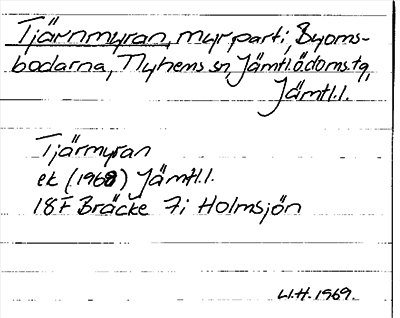 Tjärnmyran, myrparti, Byoms-
bodarna, Nyhems sn, Jämtl. ö. doms. tg,
Jämtl. l.
Tjärmyran
ek (1968) Jämtl. l.
18F Bräcke 7i Holmsjön
W.H. 1969.